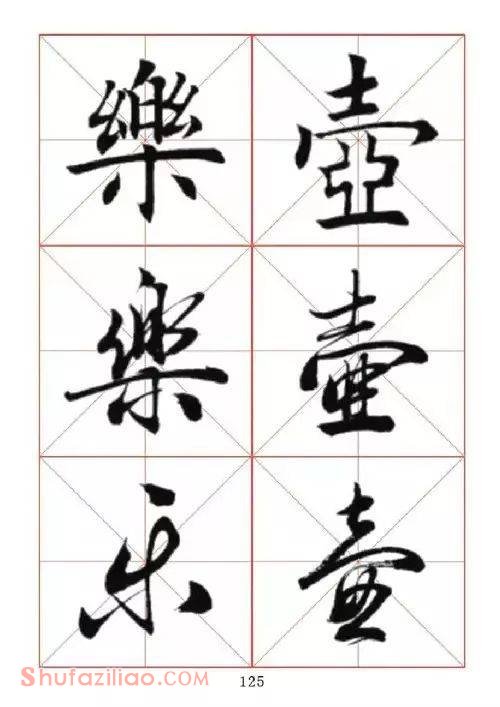 壺壺壺
樂樂乐
125
Shufaziliao.com